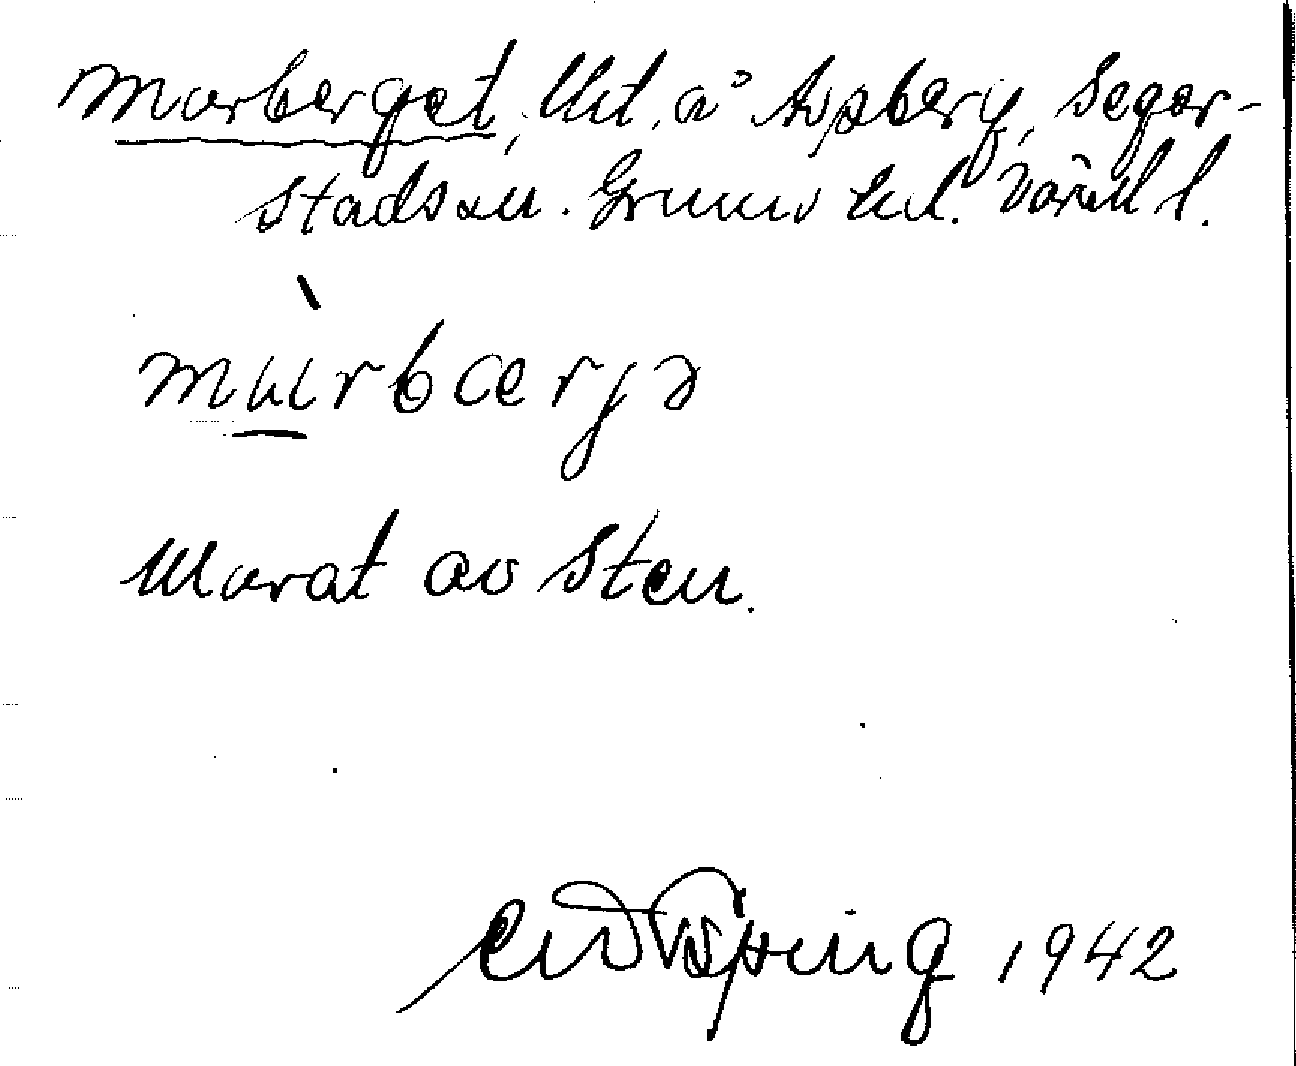 Murberget, Uht. å Aspberg, Seger-
stads sn. Grums hd. Värml l.
mùrbærjə
Murat av Sten.
1942